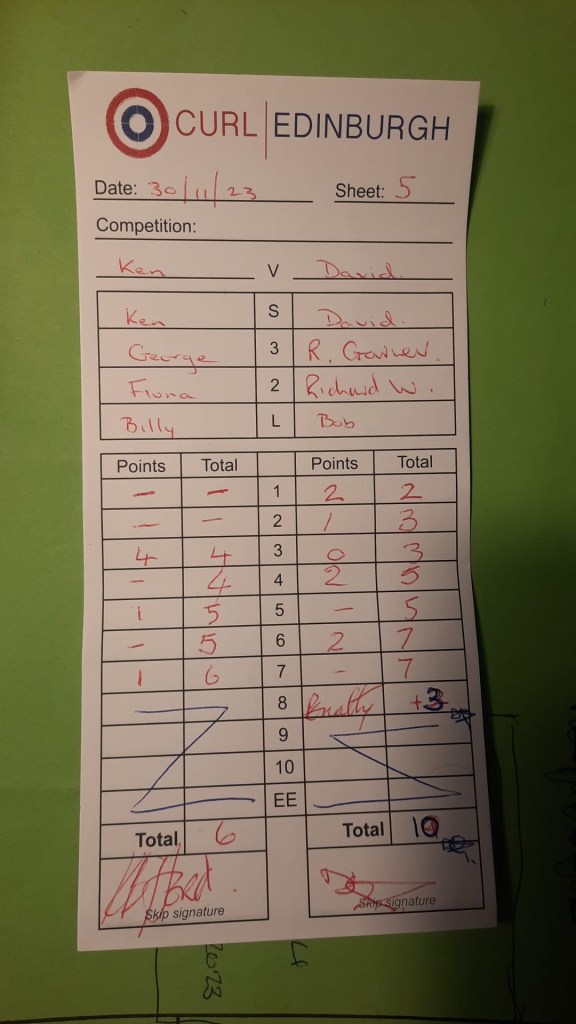 CURL | EDINBURGH
Date: 30/11/23 Sheet: 5
Competition:
Ken V David.
Ken S David.
George 3
Fiona 2 Richard W.
Billy L Bob
Points Total Points Total
- - 1 2 2
- - 2 1 3
4 4 3 0 3
- 4 4 2 5
1 5 5 - 5
- 5 6 2 7
1 6 7 - 7
8 Penalty +3
9
10
EE
Total 6 Total 10
Skip signature Skip signature
2023